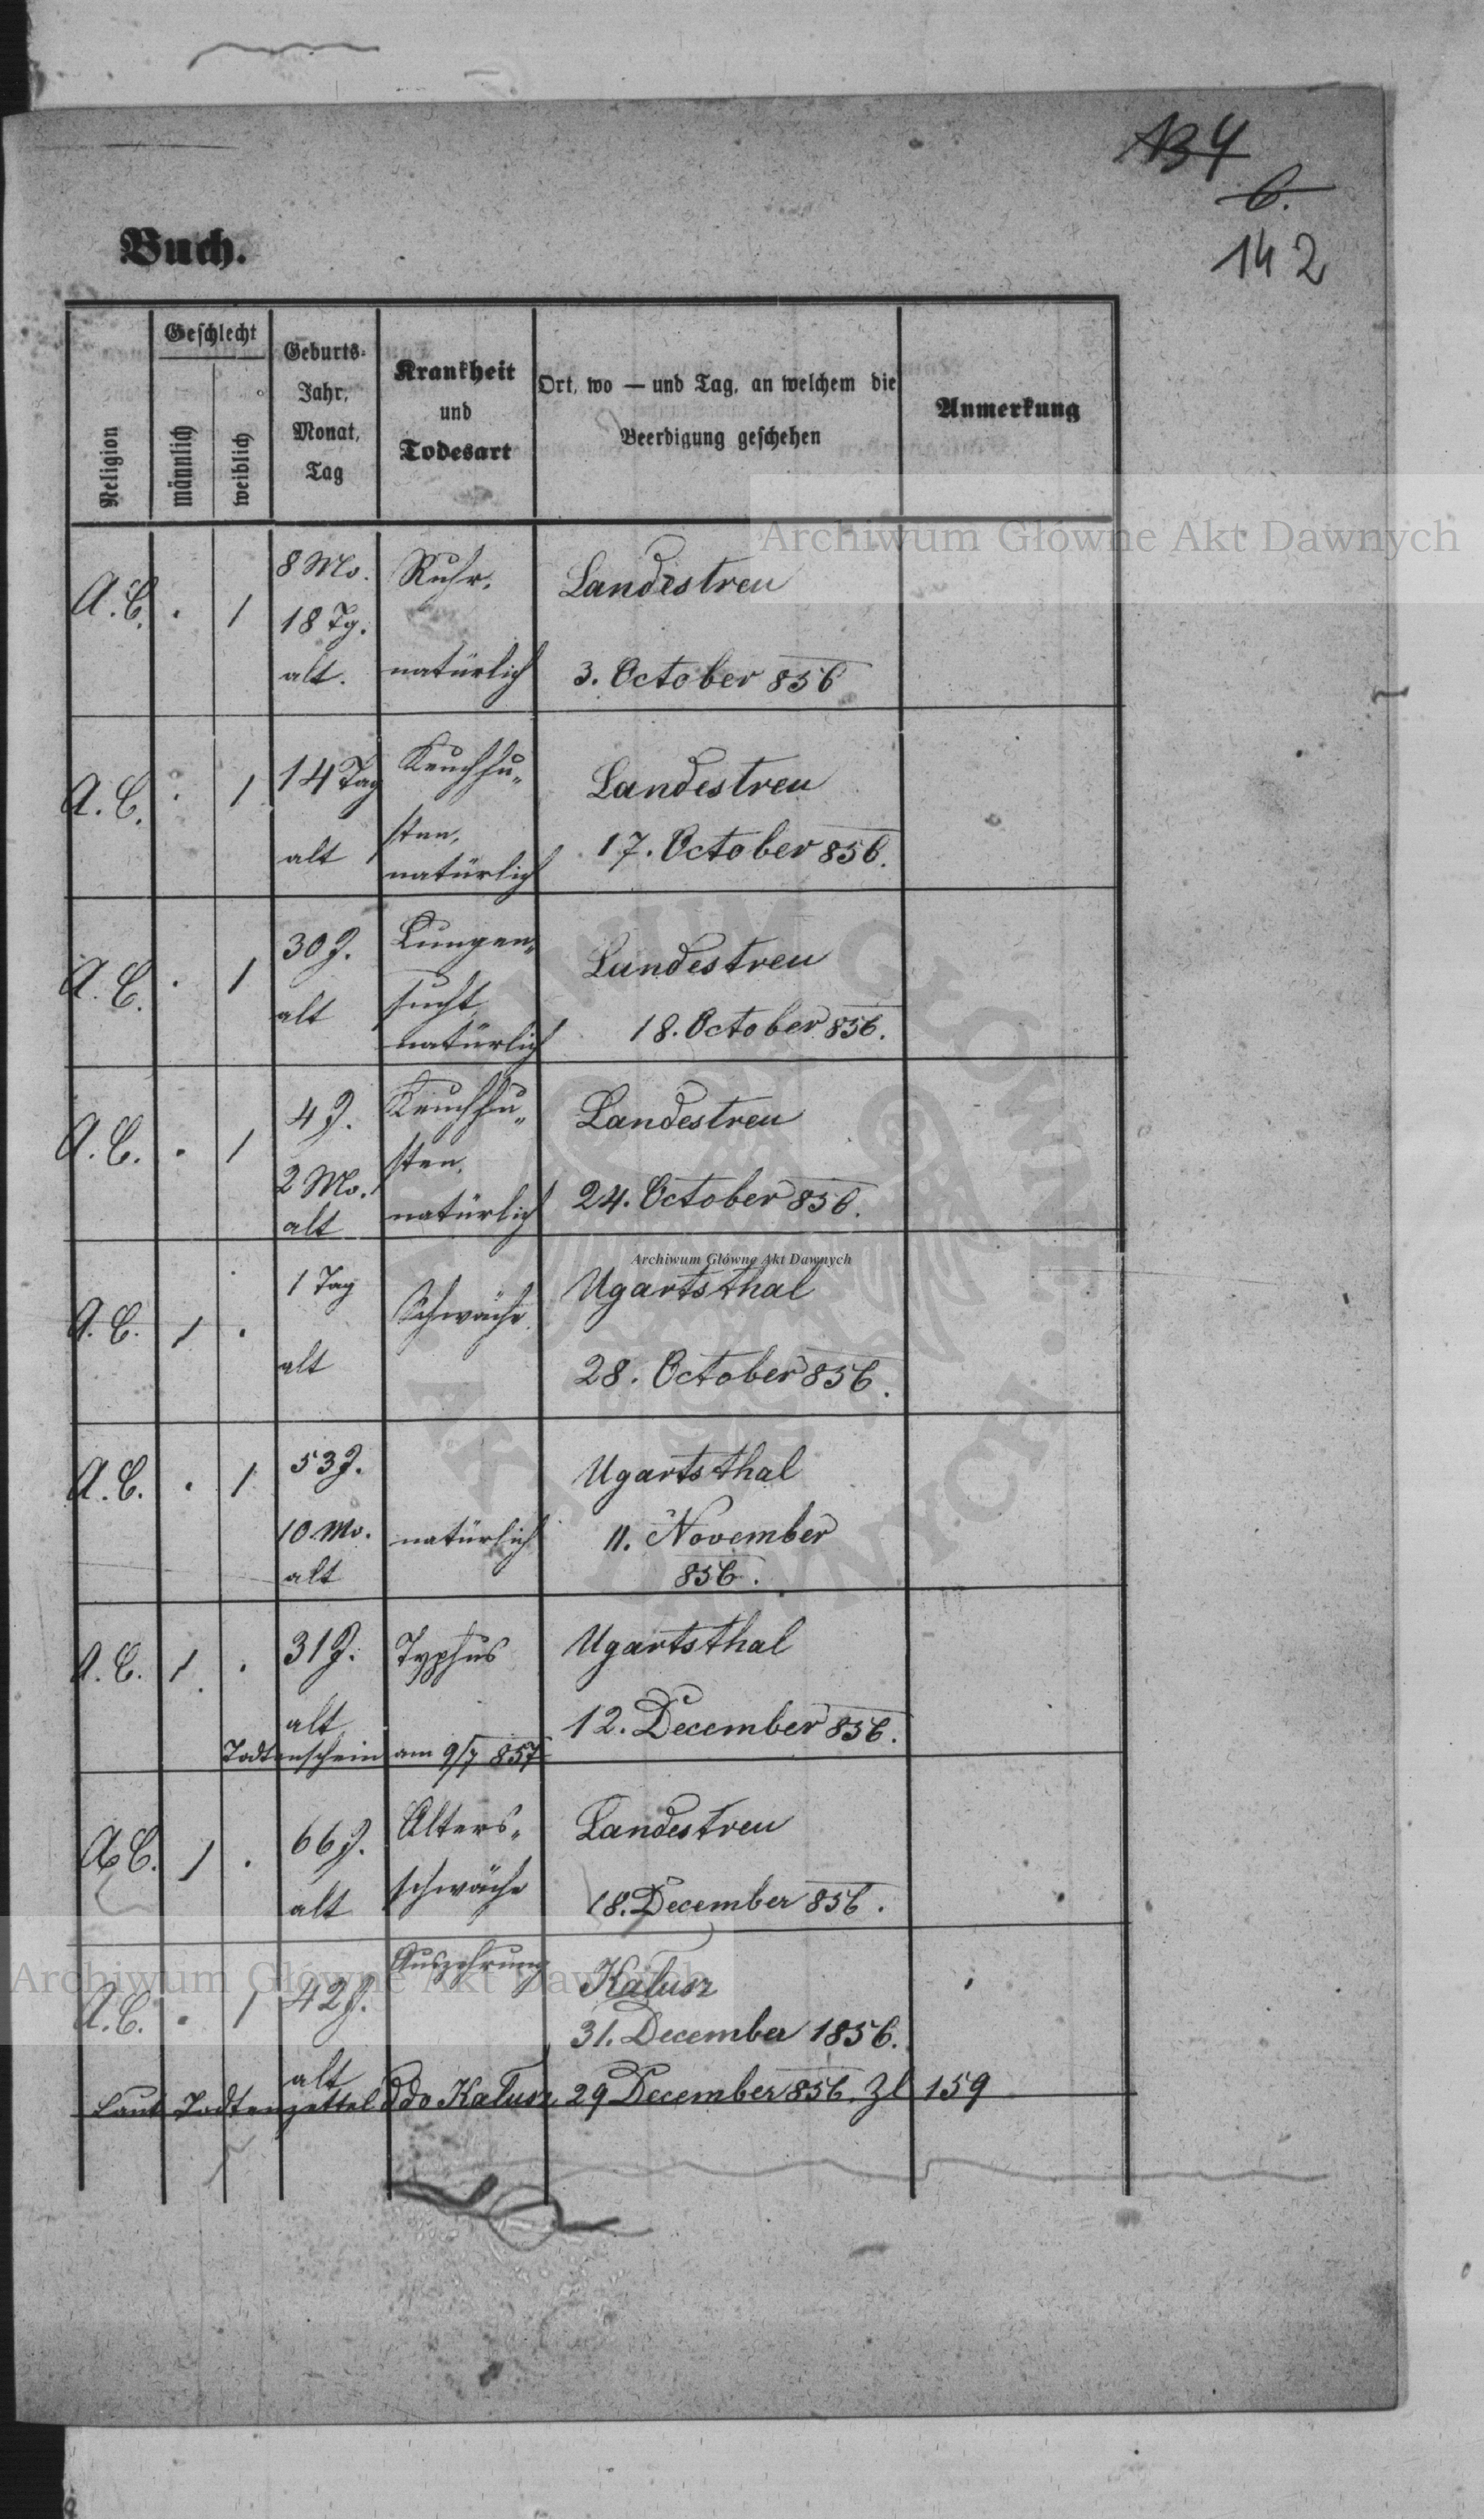 134
6.
142
Buch.
Religion
Geschlecht
männlich
weiblich
Geburts-
Jahr,
Monat,
Tag
Krankheit
und
Todesart
Ort, wo — und Tag, an welchem die
Beerdigung geschehen
Anmerkung
Archiwum Główne Akt Dawnych
A. C. . 1
8 Mo.
18 Tg.
alt.
Ruhr.
natürlich
Landestreu
3. October 856
A. C. . 1
14 Tag
alt
Keuchhu„
sten,
natürlich
Landestreu
17. October 856.
A. C. . 1
30 J.
alt
Lungen„
sucht,
natürlich
Landestreu
18. October 856.
A. C. . 1
4 J.
2 Mo.
alt
Keuchhu„
sten,
natürlich
Landestreu
24. October 856.
Archiwum Główne Akt Dawnych
A. C. 1 .
1 Tag
alt
Schwäche
Ugartsthal
28. October 856.
A. C. . 1
53 J.
10 Mo.
alt
natürlich
Ugartsthal
11. November
856.
A. C. 1 .
31 J.
alt
Typhus
Ugartsthal
12. December 856.
Todtenschein am 9/7 857
A. C. 1 .
66 J.
alt
Alters„
schwäche
Landestreu
18. December 856.
Archiwum Główne Akt Dawnych
A. C. . 1
42 J.
alt
Auszehrung
Kalusz
31. December 1856.
Laut Todtenzettel ddo Kalusz 29 December 856 Zl 159
ARCHIWUM GŁÓWNE AKT DAWNYCH